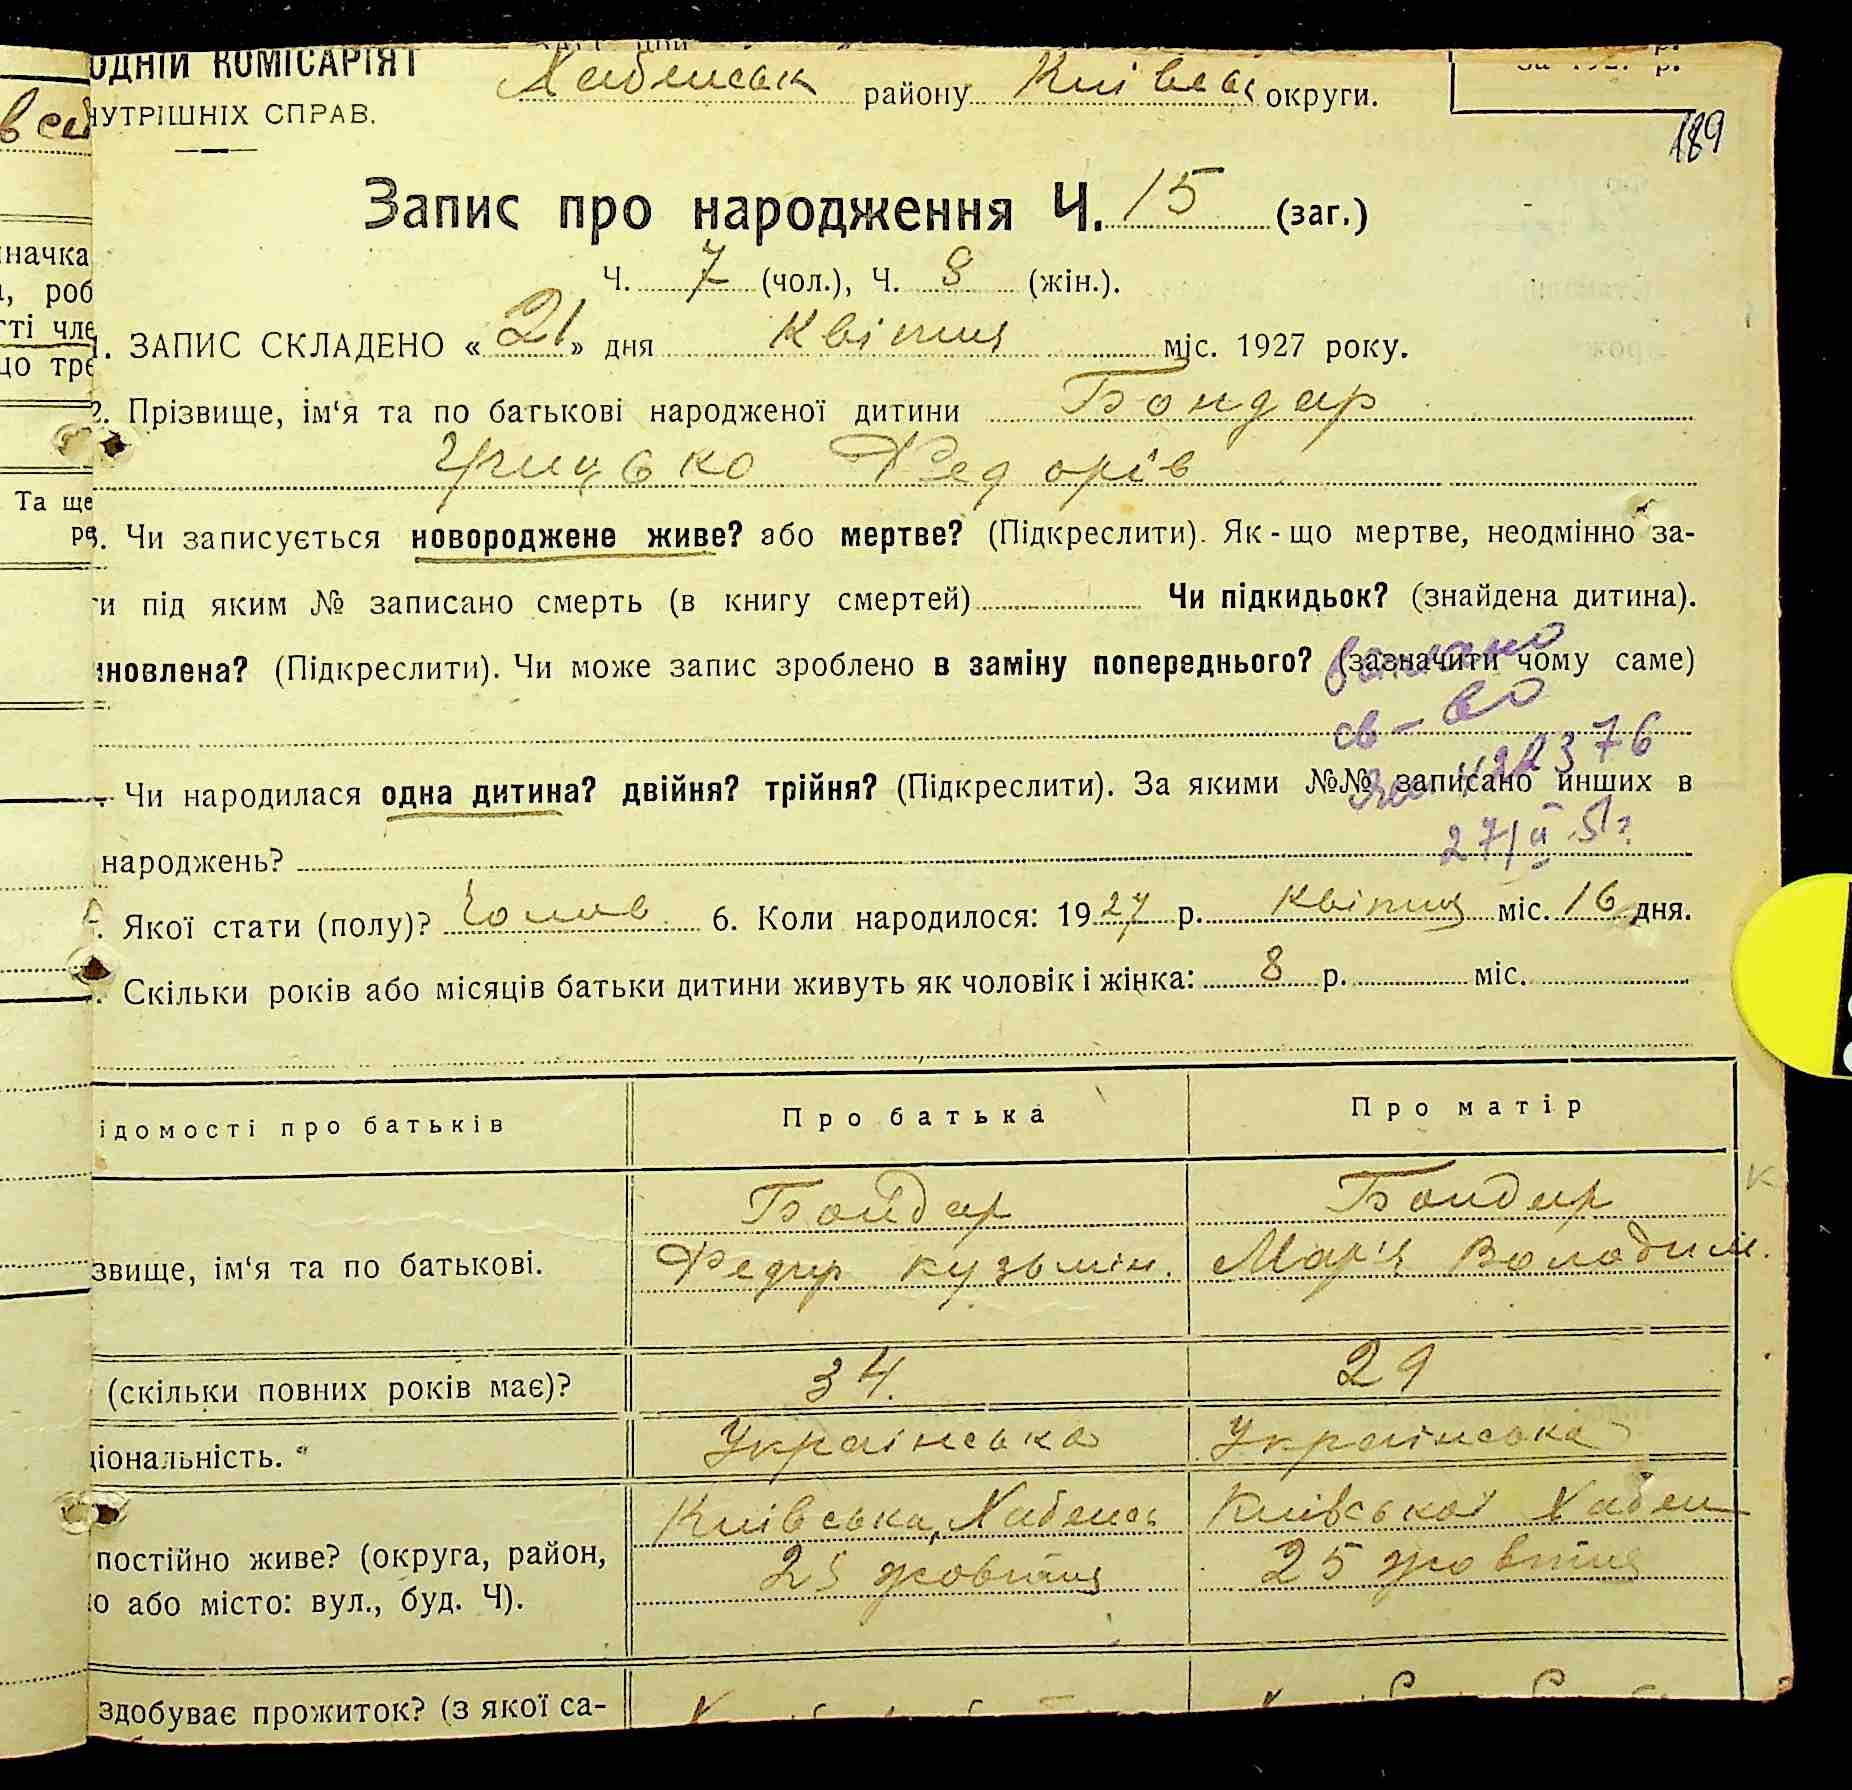 ОДНІЙ КОМІСАРІЯТ
НУТРІШНІХ СПРАВ.
Хабенськ району Київськ округи.
за 1927 р.
189
Запис про народження Ч. 15 (заг.)
Ч. 7 (чол.), Ч. 8 (жін.).
1. ЗАПИС СКЛАДЕНО «21» дня Квітня міс. 1927 року.
2. Прізвище, ім‘я та по батькові народженої дитини Бондар
Грицько Федорів
3. Чи записується новороджене живе? або мертве? (Підкреслити). Як-що мертве, неодмінно за-
ти під яким № записано смерть (в книгу смертей) Чи підкидьок? (знайдена дитина).
иновлена? (Підкреслити). Чи може запис зроблено в заміну попереднього? (зазначити чому саме)
св-во
22376
Чи народилася одна дитина? двійня? трійня? (Підкреслити). За якими №№ записано инших в
27/II 51г
народжень?
Якої стати (полу)? Чолов. 6. Коли народилося: 1927 р. Квітня міс. 16 дня.
Скільки років або місяців батьки дитини живуть як чоловік і жінка: 8 р. міс.
ідомості про батьків Про батька Про матір
Бондар Бондар
звище, ім‘я та по батькові. Федір Кузьмін. Мар'я Володим.
(скільки повних років має)? 34. 29
ціональність. Українська Українська
Київська, Хабенсь Київської Хабен
постійно живе? (округа, район, 25 жовтня 25 жовтня
о або місто: вул., буд. Ч).
здобуває прожиток? (з якої са-
начка
, роб
ті чле
що тре
Та ще
ре